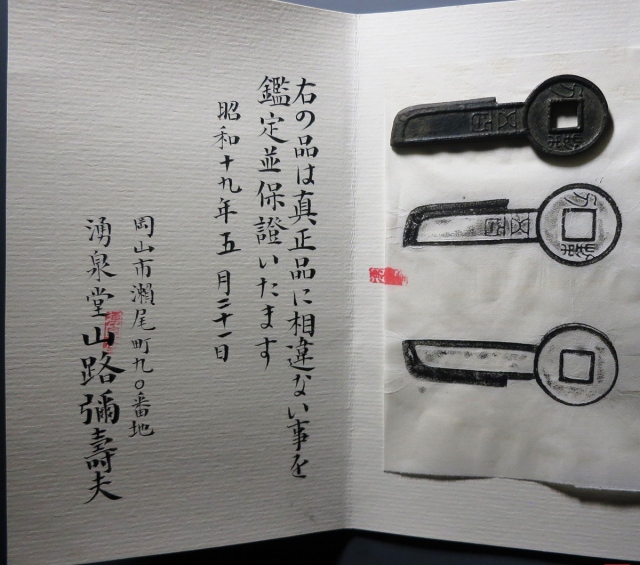 右の品は真正品に相違ない事を
鑑定並保證いたます
昭和十九年五月二十一日
岡山市瀨尾町九〇番地
湧泉堂山路彌壽夫
契刀
五百
契刀
五百